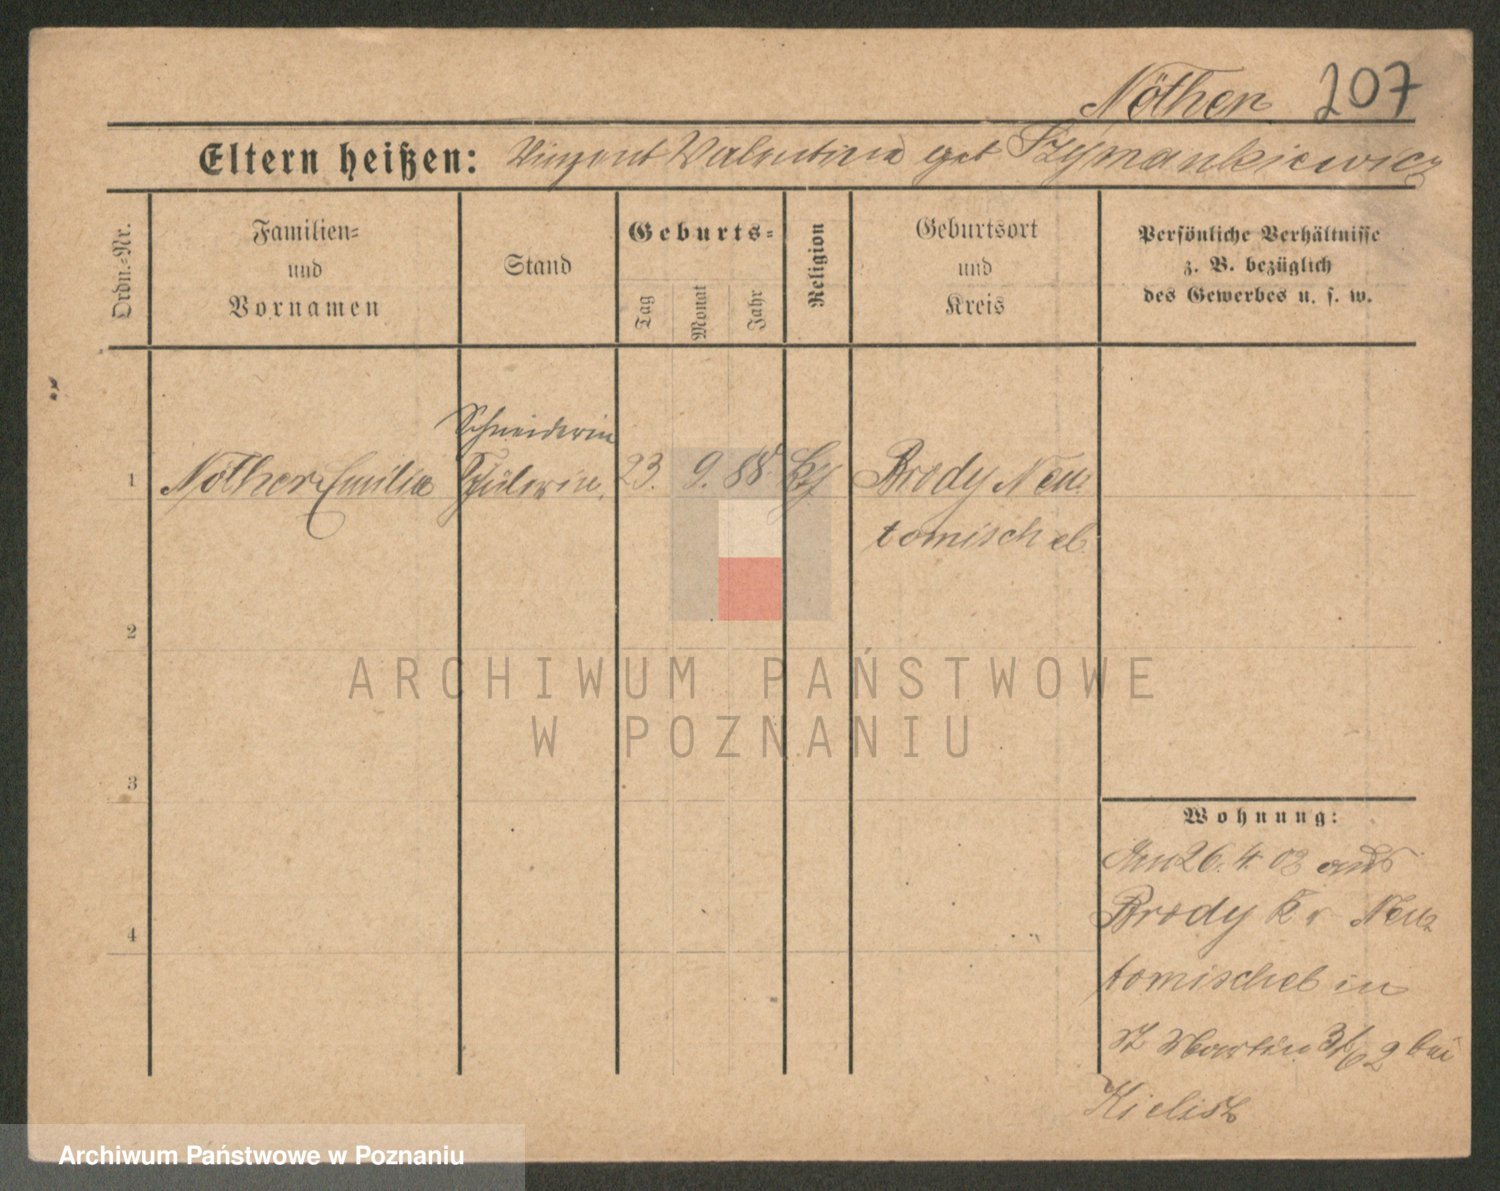 Nöther 207
Eltern heißen: Vinzent Valentina geb Szymankiewicz
Ordn.-Nr.
Familien-
und
Vornamen
Stand
Geburts-
Tag
Monat
Jahr
Religion
Geburtsort
und
Kreis
Persönliche Verhältnisse
z. B. bezüglich
des Gewerbes u. s. w.
Schneiderin
1 Nöther Emilia Schülerin. 23. 9. 88. Brody Neu
tomischel
2
3
4
Wohnung:
26. 4 03 aus
Brody Kr Neu
tomischel in
St Martin bei
ARCHIWUM PAŃSTWOWE
W POZNANIU
Archiwum Państwowe w Poznaniu